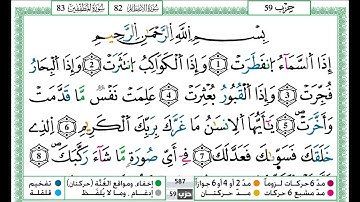 حزب 59 سورة الانفطار 82 سورة المطففين 83
بِسْمِ اللَّهِ الرَّحْمَٰنِ الرَّحِيمِ
إِذَا السَّمَاءُ انفَطَرَتْ 1 وَإِذَا الْكَوَاكِبُ انتَثَرَتْ 2 وَإِذَا الْبِحَارُ
فُجِّرَتْ 3 وَإِذَا الْقُبُورُ بُعْثِرَتْ 4 عَلِمَتْ نَفْسٌ مَّا قَدَّمَتْ
وَأَخَّرَتْ 5 يَٰأَيُّهَا الْإِنسَٰنُ مَا غَرَّكَ بِرَبِّكَ الْكَرِيمِ 6 الَّذِي
خَلَقَكَ فَسَوَّىٰكَ فَعَدَّلَكَ 7 فِي أَيِّ صُورَةٍ مَّا شَاءَ رَكَّبَكَ 8
مدّ 6 حركات لزوماً مدّ 2 أو 4 أو 6 جوازاً 587 إخفاء، ومواقع الغُنَّة (حركتان) تفخيم
مدّ مشبع 6 حركات مدّ حركتان حزب 59 إدغام، وما لا يُلفظ قلقلة